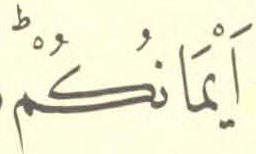 اَيْمَانُكُمْؕ